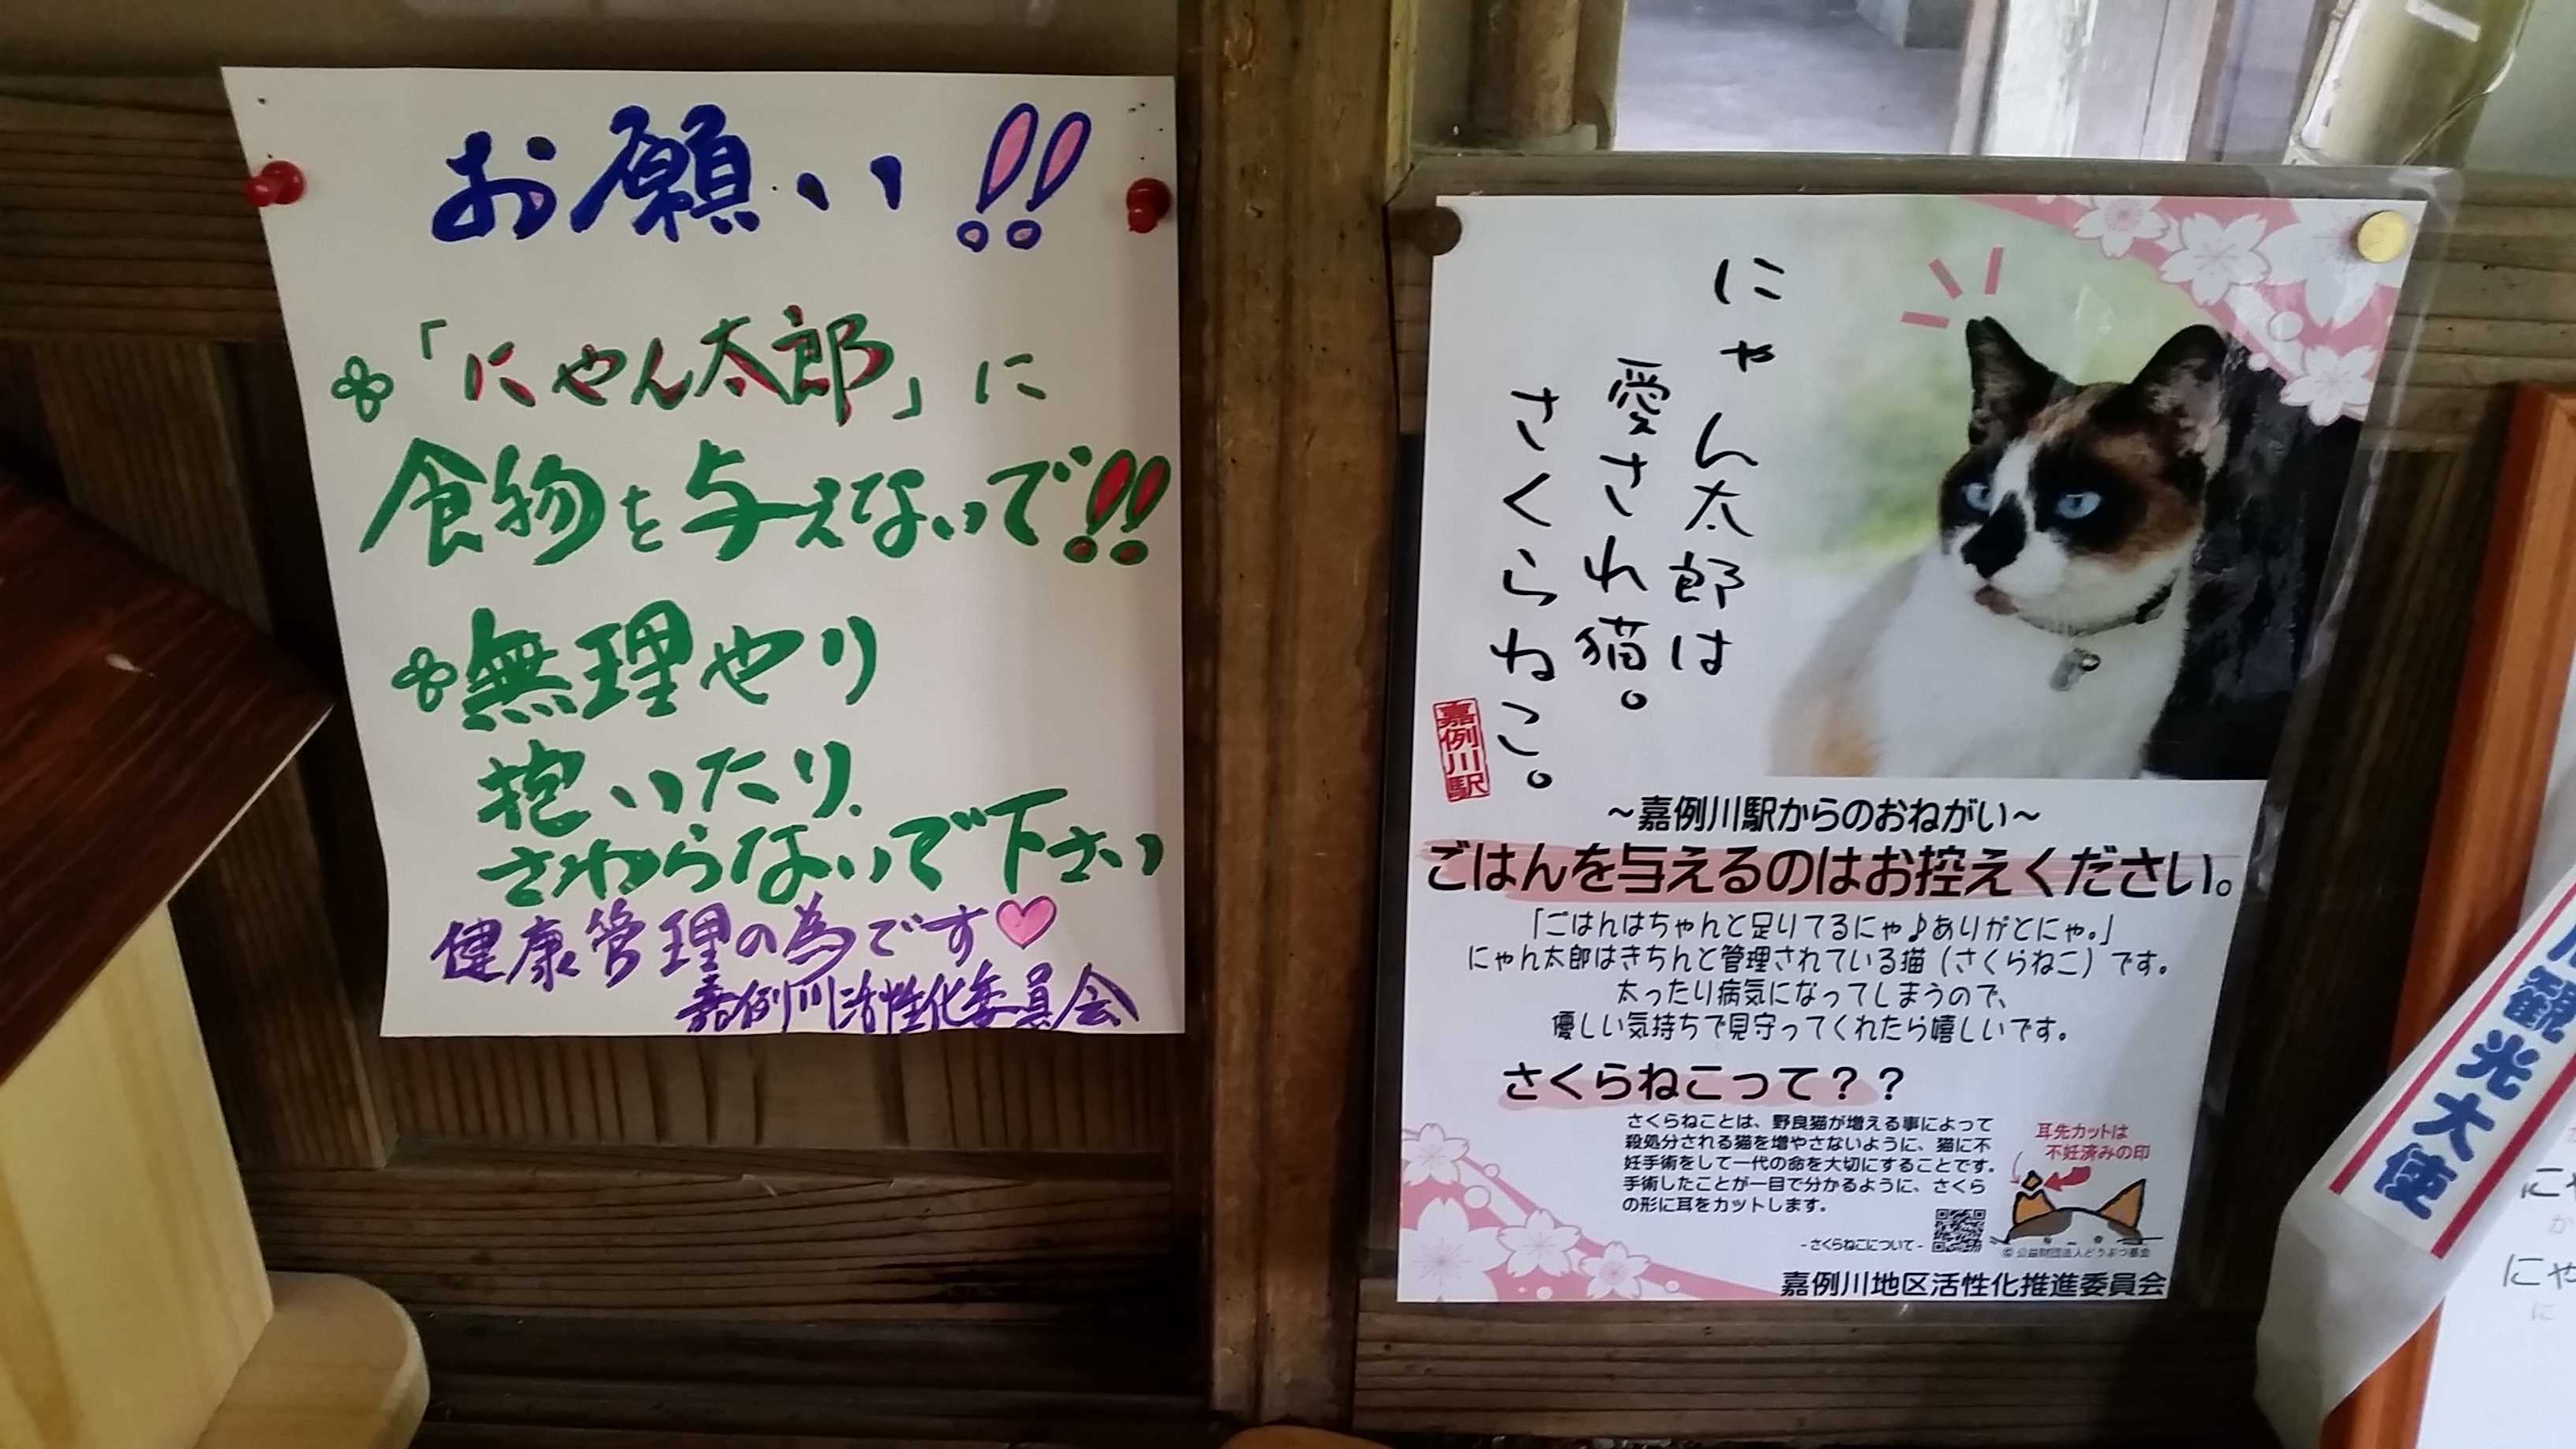 お願い!!
「にゃん太郎」に
食物を与えないで!!
無理やり
抱いたり
さわらないで下さい
健康管理の為です♡
嘉例川活性化委員会
にゃん太郎は
愛され猫。
さくらねこ。
嘉例川駅
～嘉例川駅からのおねがい～
ごはんを与えるのはお控えください。
「ごはんはちゃんと足りてるにゃ♪ありがとにゃ。」
にゃん太郎はきちんと管理されている猫（さくらねこ）です。
太ったり病気になってしまうので、
優しい気持ちで見守ってくれたら嬉しいです。
さくらねこって？？
さくらねことは、野良猫が増える事によって
殺処分される猫を増やさないように、猫に不
妊手術をして一代の命を大切にすることです。
手術したことが一目で分かるように、さくら
の形に耳をカットします。
耳先カットは
不妊済みの印
-さくらねこについて-
© 公益財団法人どうぶつ基金
嘉例川地区活性化推進委員会
観光大使